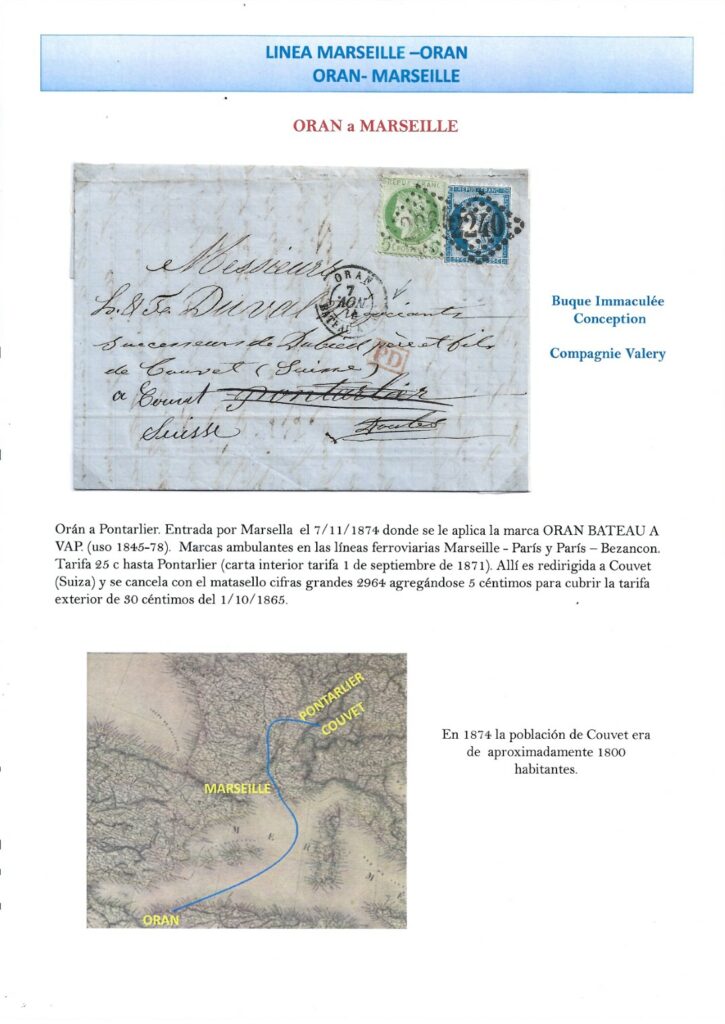 LINEA MARSEILLE –ORAN
ORAN- MARSEILLE
ORAN a MARSEILLE
REPUB FRANC
REPUB FRANC
2240
ORAN
7
NOV
74
BATEAU
Messieurs
Duval négociants
successeurs de Dubied père et fils
PD
de Couvet (Suisse)
a Couvet Pontarlier
Suisse Doubs
Buque Immaculée
Conception
Compagnie Valery
Orán a Pontarlier. Entrada por Marsella el 7/11/1874 donde se le aplica la marca ORAN BATEAU A
VAP. (uso 1845-78). Marcas ambulantes en las líneas ferroviarias Marseille - París y París – Bezancon.
Tarifa 25 c hasta Pontarlier (carta interior tarifa 1 de septiembre de 1871). Allí es redirigida a Couvet
(Suiza) y se cancela con el matasello cifras grandes 2964 agregándose 5 céntimos para cubrir la tarifa
exterior de 30 céntimos del 1/10/1865.
PONTARLIER
COUVET
MARSEILLE
ORAN
En 1874 la población de Couvet era
de aproximadamente 1800
habitantes.